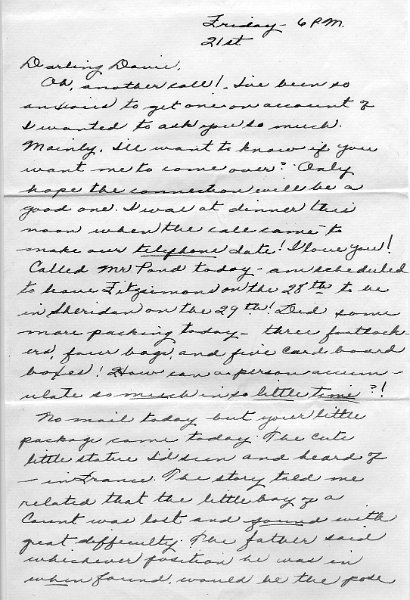 Friday - 6 P.M.
21st
Darling Davie,
Oh, another call! I've been so
anxious to get one on account of
I wanted to ask you so much.
Mainly, I'll want to know if you
want me to come over? Only
hope the connection will be a
good one. I was at dinner this
noon when the call came to
make our telephone date! I love you!
Called Mr Pond today - am scheduled
to leave Fitzsimons on the 28th to be
in Sheridan on the 29th! Did some
more packing today - three footlock-
ers, four bags, and five card board
boxes! How can a person accum-
ulate so much in so little time?!
No mail today but your little
package came today. The cute
little statue I'd seen and heard of
- in France. The story told me
related that the little boy of a
Count was lost and found with
great difficulty. The father said
whichever position he was in
when found would be the pose